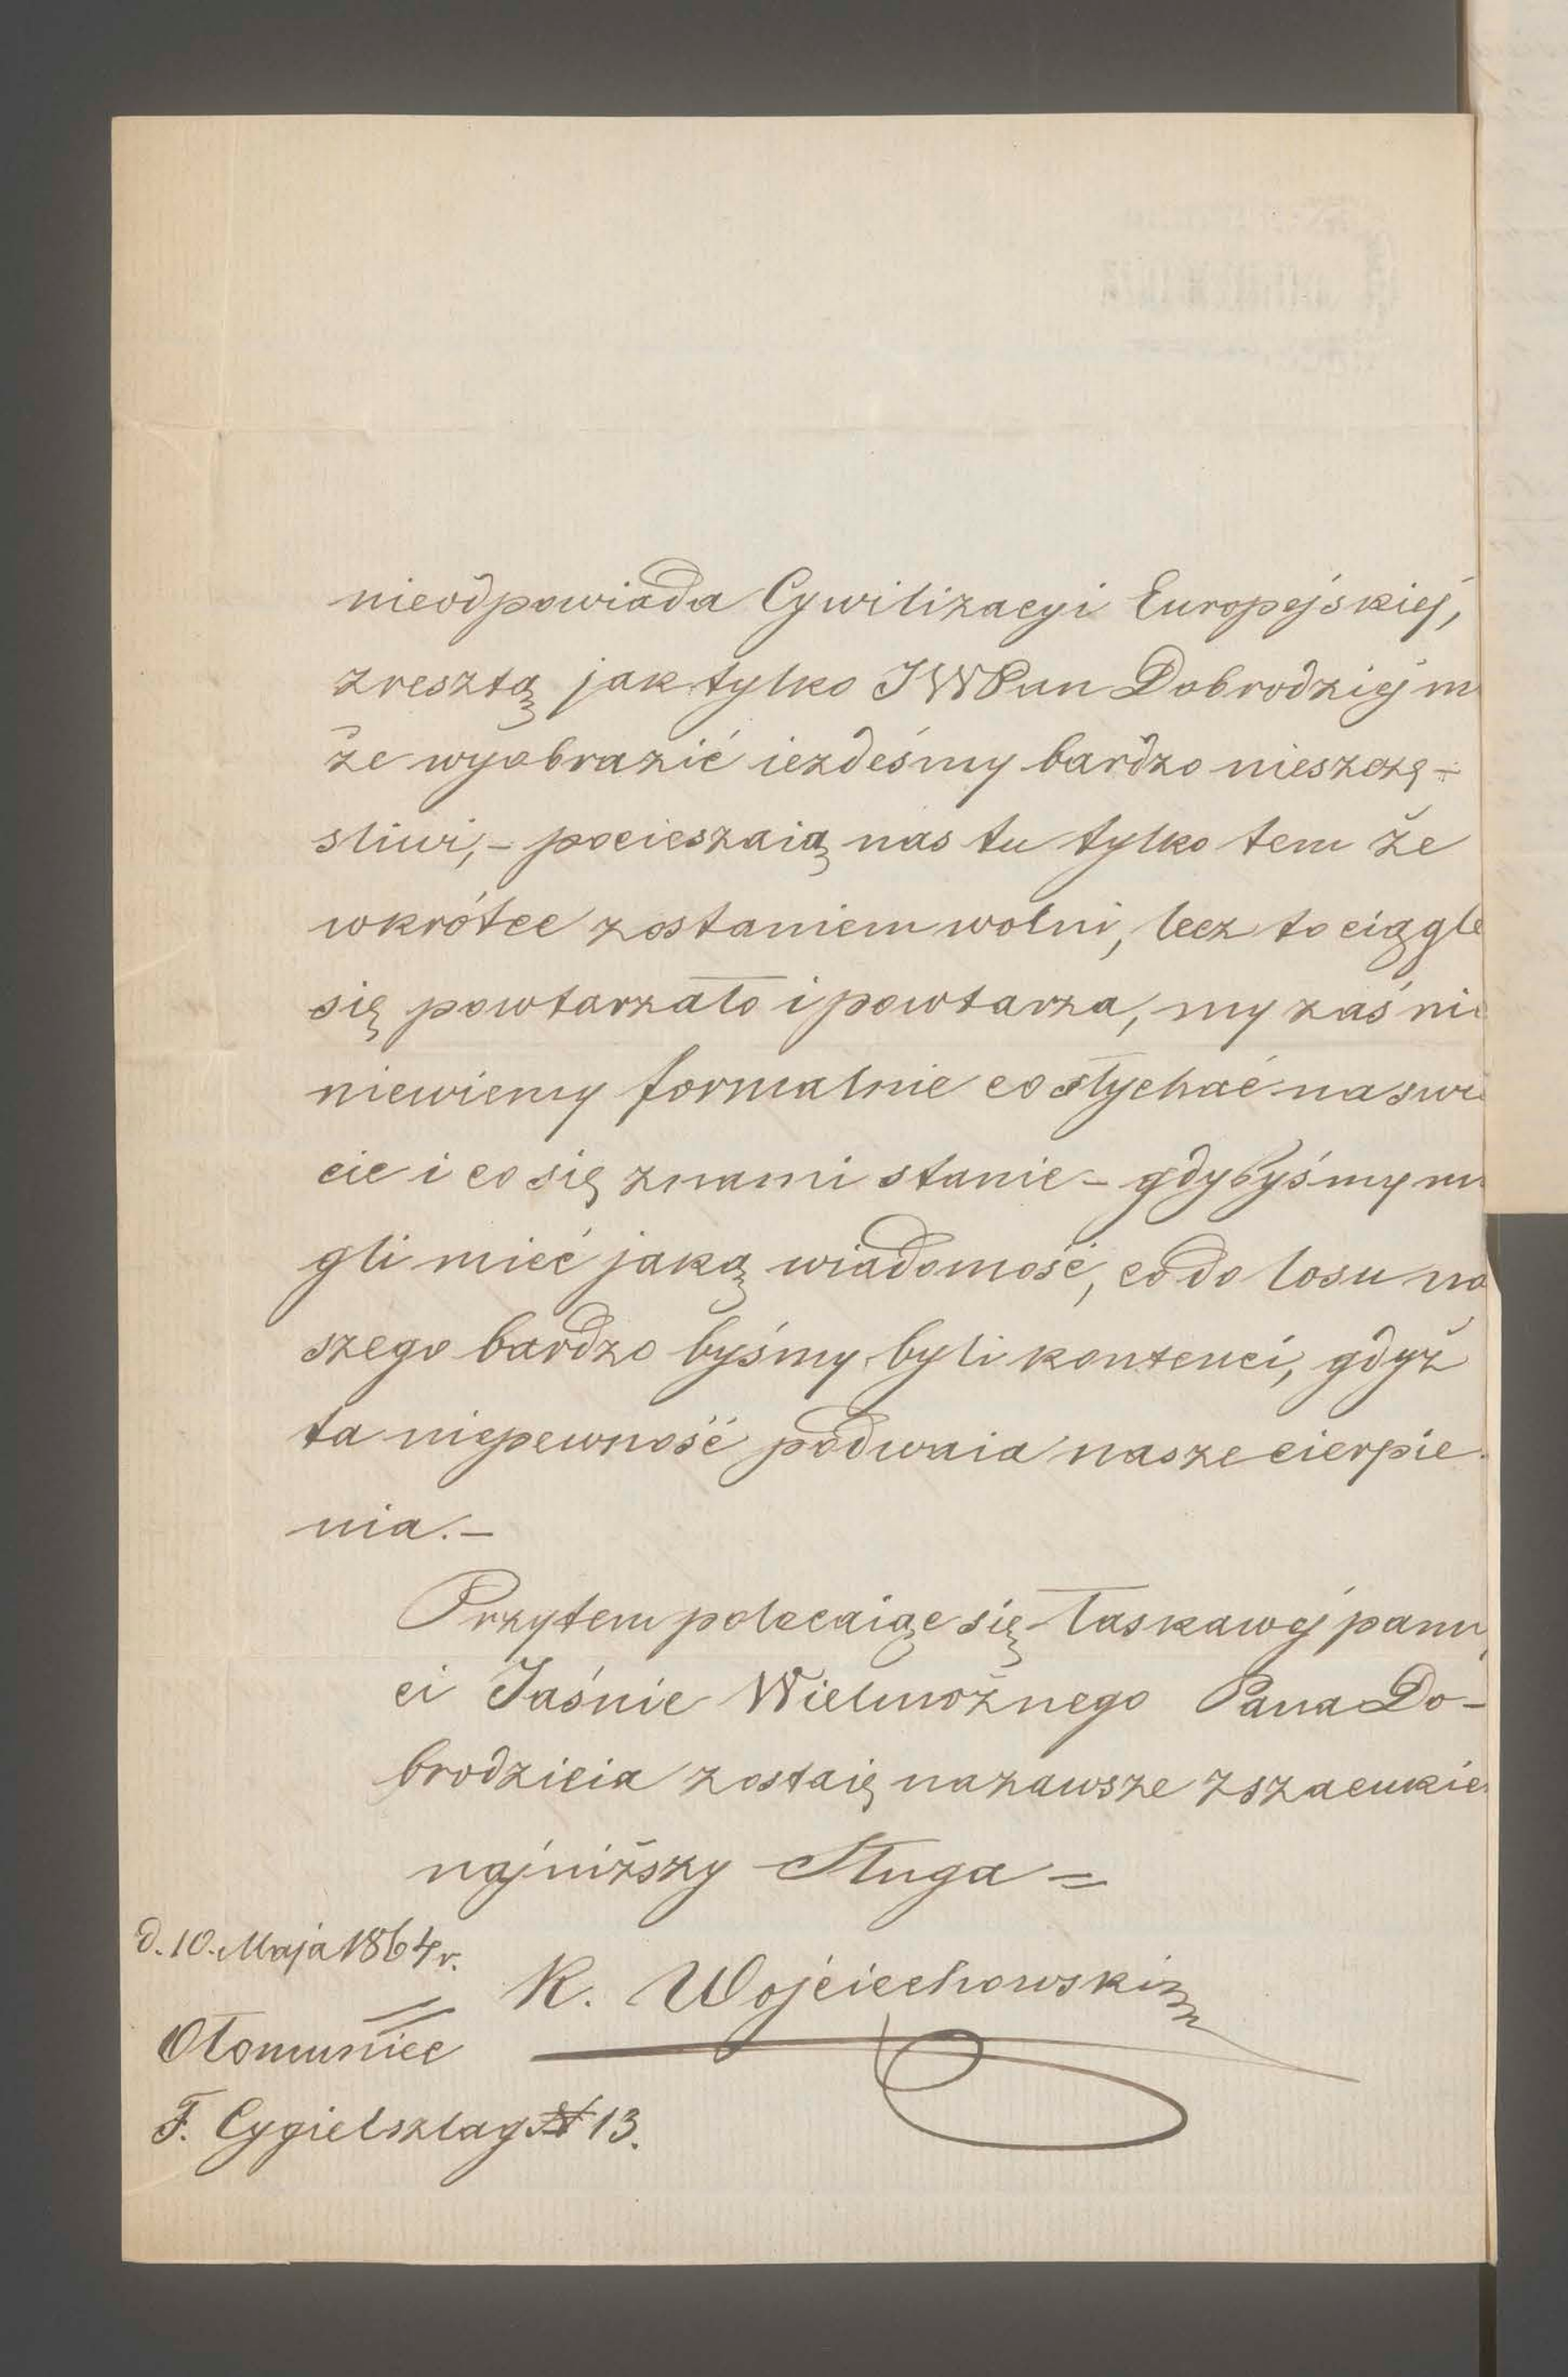 nieodpowiada Cywilizacyi Europejskiej,
zresztą jak tylko JWPan Dobrodziej m
że wyobrazić iezdeśmy bardzo nieszczę-
sliwi, - pocieszaią nas tu tylko tem że
wkrótce zostaniem wolni, lecz to ciągle
się powtarzało i powtarza, my zaś nic
niewiemy formalnie co słychać na swie
cie i co się znami stanie - gdybyśmy m
gli mieć jaką wiadomość, co do losu na
szego bardzo byśmy byli kontenci, gdyż
ta niepewność podwaia nasze cierpie
nia. -
Przytem polecaiąc się łaskawej pami
ci Jaśnie Wielmożnego Pana Do-
brodzieia zostaię nazawsze z szacunkie
najniższy Sługa =
d. 10. Maja 1864 r.
K. Wojciechowski
Ołomuniec
F. Cygielszlag N 13.